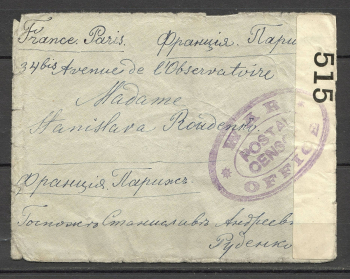 France. Paris. Франція. Пари
34 bis Avenue de l'Observatoire
Madame
Stanislava
515
POSTAL
OFFICE
Франція Парижъ
Госпожѣ Станиславѣ Андреевн
Руденко